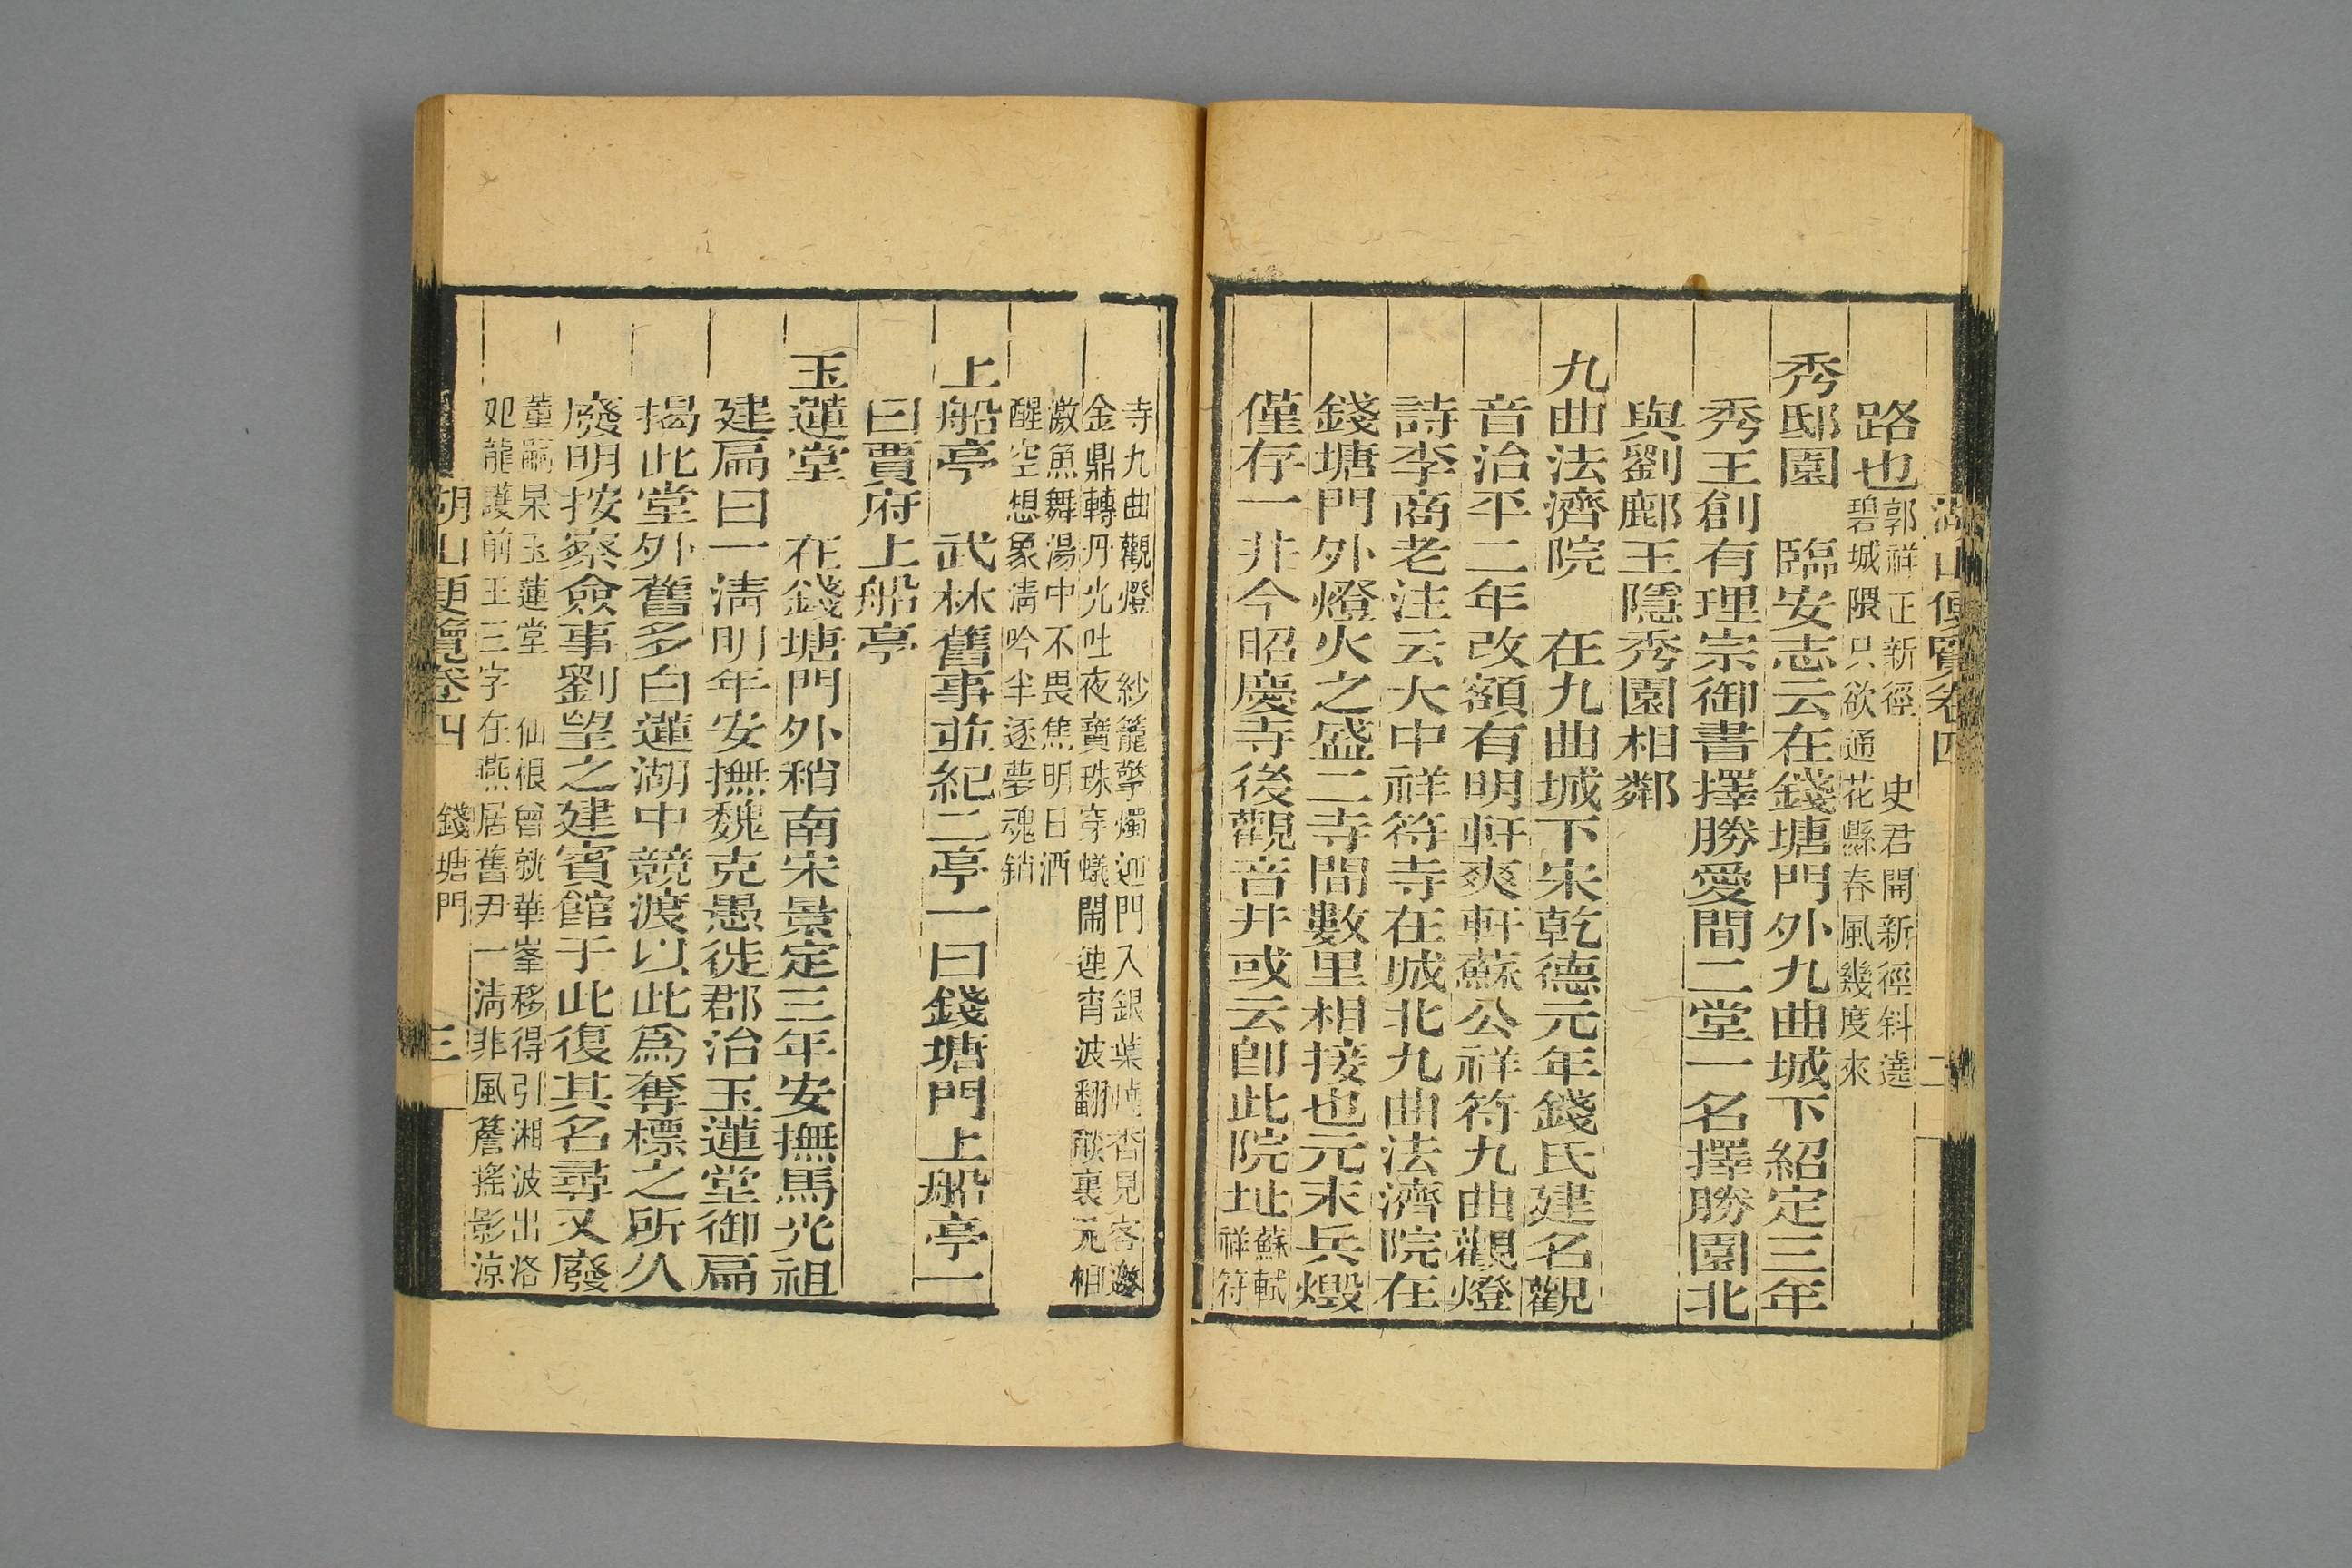 湖山便覽卷四 二
路也
郭祥正新徑 史君開新徑斜遶
碧城隈只欲通花縣春風幾度來
秀邸園 臨安志云在錢塘門外九曲城下紹定三年
秀王創有理宗御書擇勝愛閒二堂一名擇勝園北
與劉鄜王隱秀園相鄰
九曲法濟院 在九曲城下宋乾德元年錢氏建名觀
音治平二年改額有明軒爽軒蘇公祥符九曲觀燈
詩李商老注云大中祥符寺在城北九曲法濟院在
錢塘門外燈火之盛二寺間數里相接也元末兵燬
僅存一井今昭慶寺後觀音井或云卽此院址
蘇軾
祥符
寺九曲觀燈 紗籠擎燭迎門入銀葉燒香見客邀
金鼎轉丹光吐夜寶珠穿蟻鬧連宵波翻燄裏元相
激魚舞湯中不畏焦明日酒
醒空想象淸吟半逐夢魂銷
上船亭 武林舊事並紀二亭一曰錢塘門上船亭一
曰賈府上船亭
玉蓮堂 在錢塘門外稍南宋景定三年安撫馬光祖
建扁曰一淸明年安撫魏克愚徙郡治玉蓮堂御扁
揭此堂外舊多白蓮湖中競渡以此爲奪標之所久
廢明按察僉事劉望之建賓館于此復其名尋又廢
董嗣杲玉蓮堂 仙根曾就華峯移得引湘波出洛
妃龍護前王三字在燕居舊尹一淸非風簷搖影涼
湖山便覽卷四 錢塘門 三